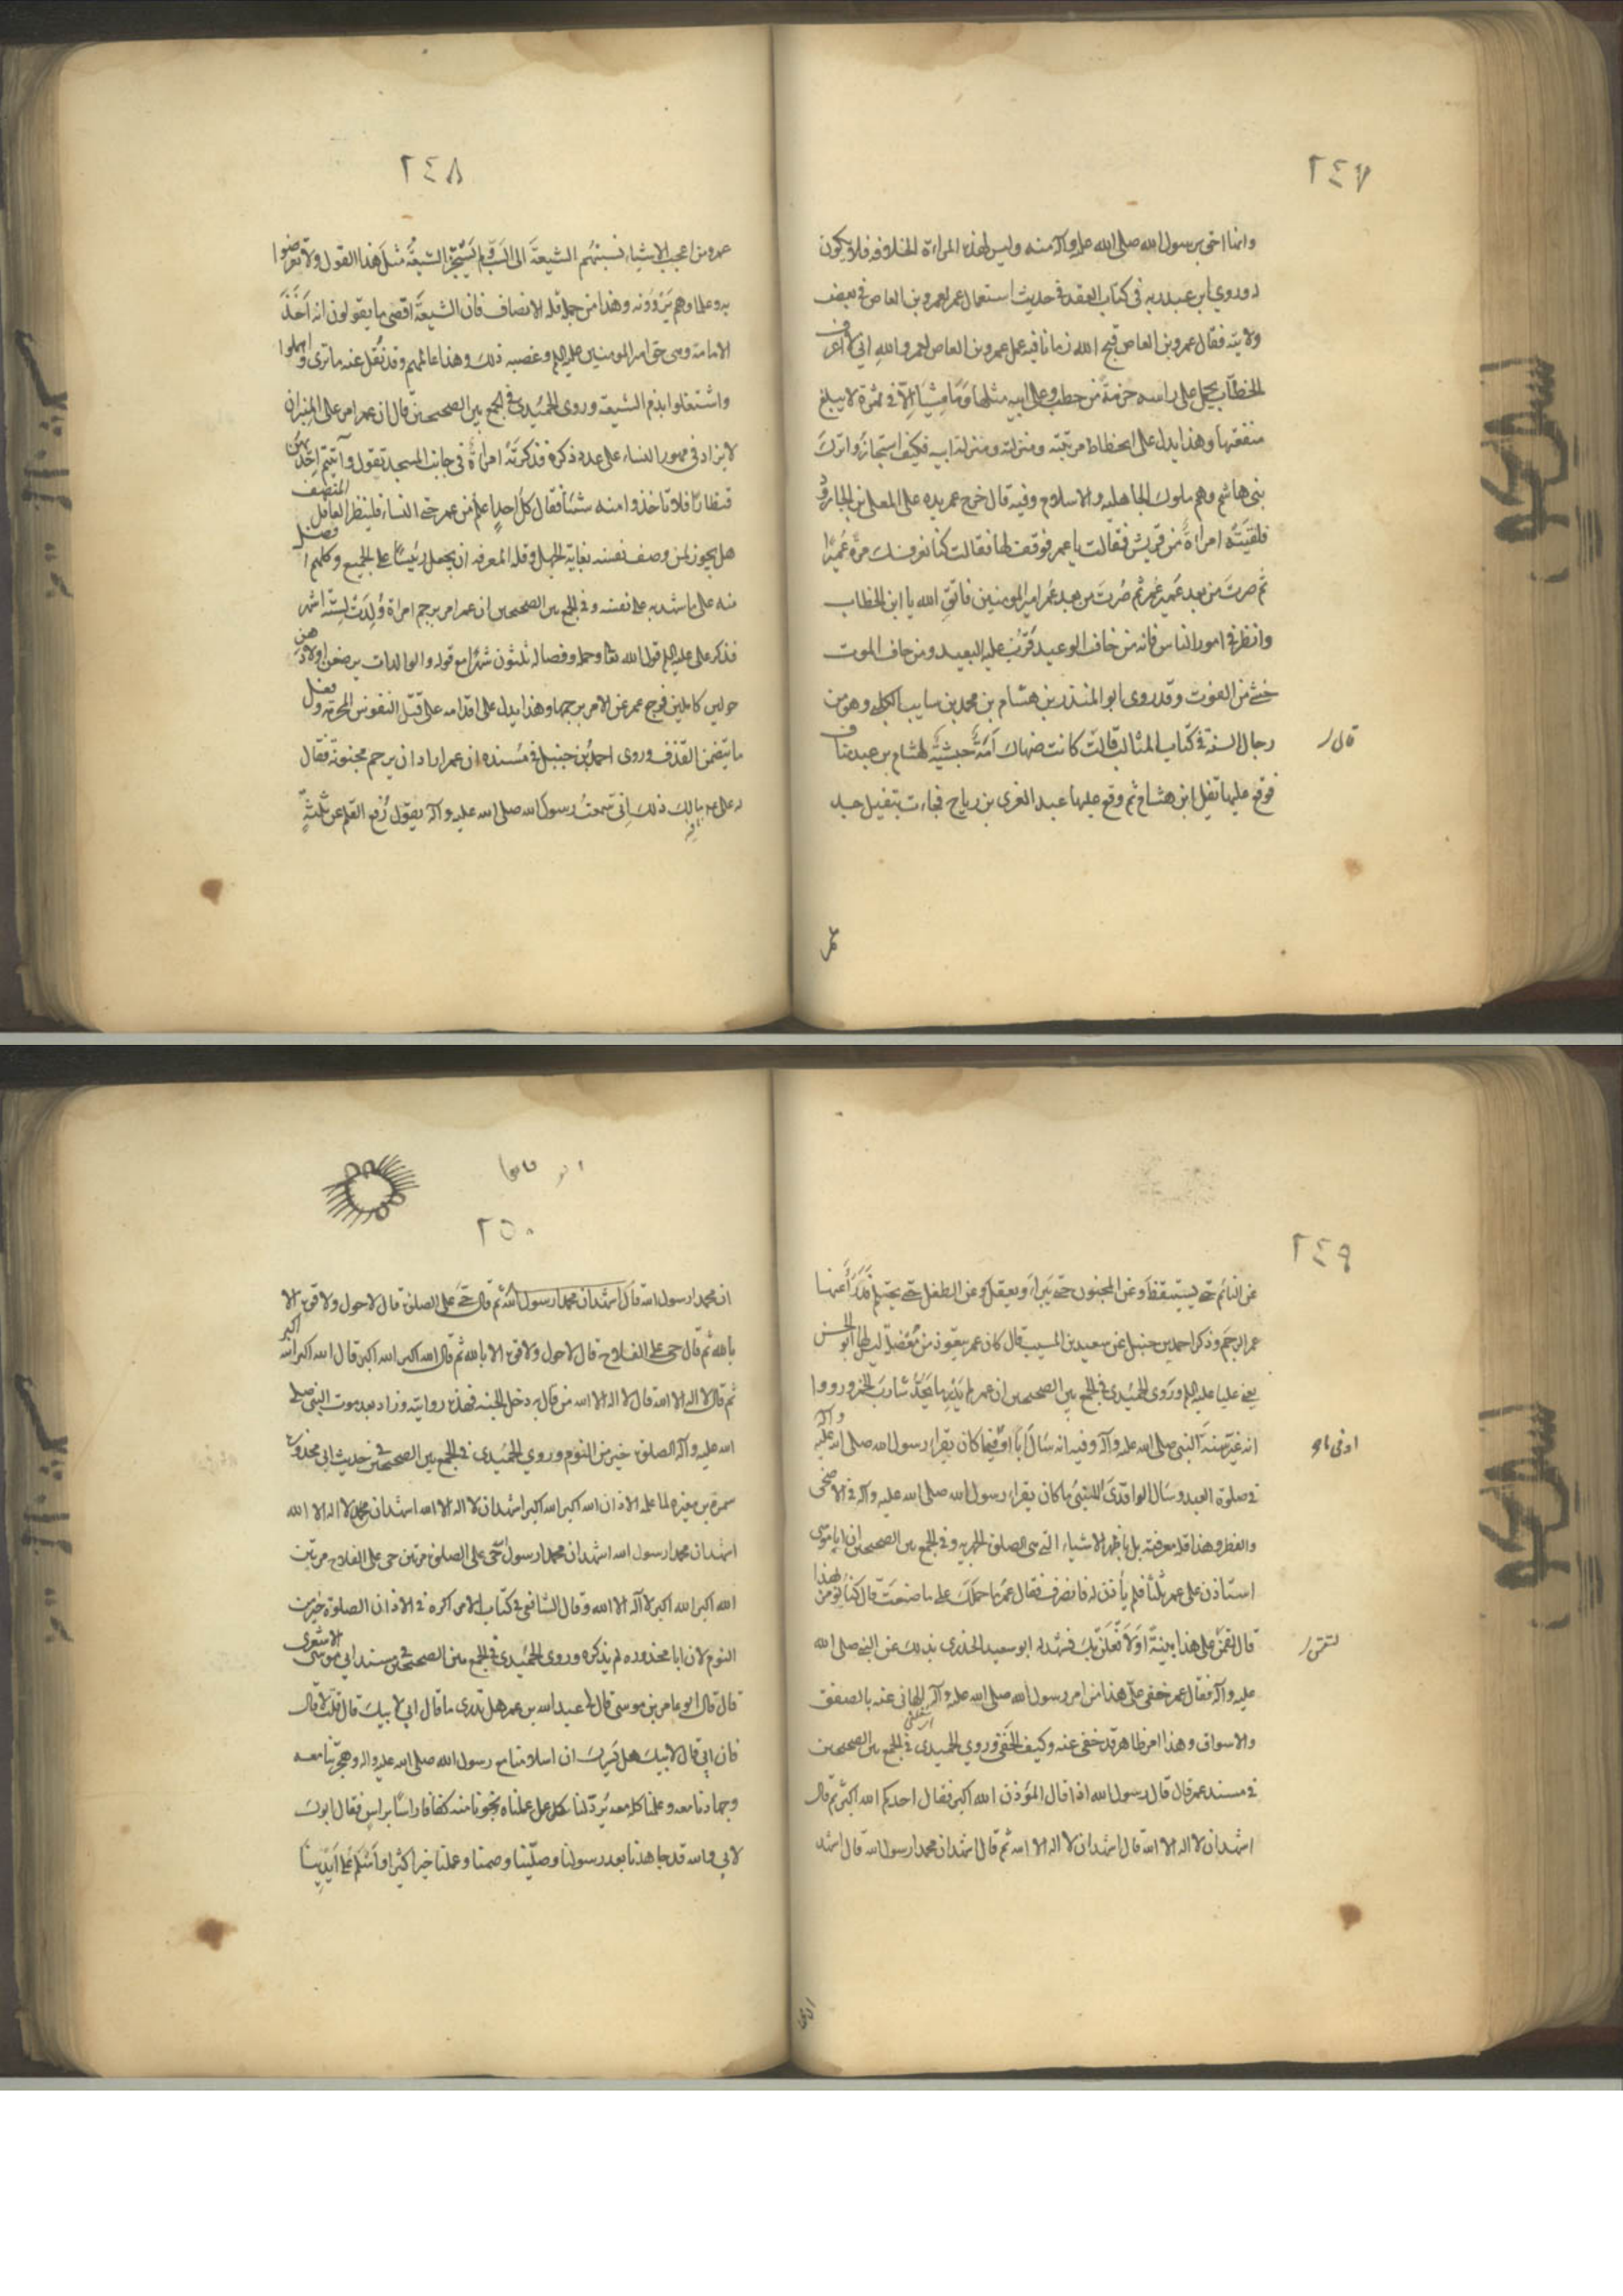 ٢٤٧
وانا احق برسول الله صلى الله عليه وآله منه وليس لهذه المراءة الخلافه فلا يكون
له وروي ابن عبد ربه فى كتاب العقد فى حديث استعمال عمر لعمرو بن العاص فى بعض
ولايته فقال عمرو بن العاص قبح الله زمانا فيه عمل عمرو بن العاص لعمر والله اني لاعرف
الخطاب يحمل على راسه حزمة من حطب وعلى ابنه مثلها وما منا الا فى نمرة لا يبلغ
منفعتها وهذا يدل على انحطاط مرتبته ومنزلته ومنزلة ابيه فكيف استجازوا ترك
بنى هاشم وهم ملوك الجاهليه والاسلام وفيه قال خرج عمر يده على المعلى بن الجارود
فلقيته امراة من قريش فقالت يا عمر فوقف لها فقالت كنا نعرفك مرة عميرا
ثم صرت من بعد عمير عمر ثم صرت من بعد عمر امير المومنين فاتق الله يا ابن الخطاب
وانظر فى امور الناس فانه من خاف الوعيد قرب عليه البعيد ومن خاف الموت
خشى من الفوت وقد روى ابو المنذر بن هشام بن محمد بن سايب الكلبي وهو من
رجال السنة فى كتاب المثالب قالت كانت ضهاك امة حبشية لهشام بن عبد مناف
قال
فوقع عليها نفيل ابن هشام ثم وقع عليها عبد العزى بن رياح فجاءت بنفيل جد
عمر
٢٤٨
عمر ومن اعجب الاشياء نسبتهم الشيعة الى السب ولم يستجز الشيعة مثل هذا القول ولا تعرضوا
به وعلماوهم يروونه وهذا من جملة قلة الانصاف فان الشيعة اقصى ما يقولون انه اخذ
الامامة وهى حق امير المومنين عليه السلم وغصبه ذلك وهذا عالمهم وقد نقل عنه ما ترى واهملوا
واشتغلوا بذم الشيعة وروى الحميدى فى الجمع بين الصحيحين قال ان عمر امر على المنبر ان
لا يزاد فى مهور النساء على عدد ذكره فذكرته امراة فى جانب المسجد تقول وآتيتم احديهن
قنطارا فلا تاخذوا منه شيئا فقال كل احد اعلم من عمر حتى النساء فلينظر العاقل المنصف
هل يجوز لمن وصف نفسه بغاية الجهل وقلة المعرفه ان يجعل رئيسا على الجميع وكلهم افضل
منه على ما شهد به على نفسه وفى الجمع بين الصحيحين ان عمر امر برجم امراة ولدت لستة اشهر
فذكر على عليه السلم قول الله تعا وحمله وفصاله ثلثون شهرا مع قوله والوالدات يرضعن اولادهن
حولين كاملين فرجع عمر عن الامر برجمها وهذا يدل على اقدامه على قتل النفوس المحرمة وفعل
ما يتضمن القذف وروى احمد بن حنبل فى مسنده ان عمر اراد ان يرجم مجنونة فقال
له على ما لك ذلك انى سمعت رسول الله صلى الله عليه وآله يقول رفع القلم عن ثلثة
٢٤٩
عن النائم حتى يستيقظ وعن المجنون حتى يبراء ويعقل وعن الطفل حتى يحتلم فدراء عنها
عمر الرجم وذكر احمد بن حنبل عن سعيد بن المسيب قال كان عمر يتعوذ من معضلة ليس لها ابو الحسن
يعنى عليا عليه السلم وروى الحميدى فى الجمع بين الصحيحين ان عمر لم يدر ما يحد شارب الخمر ورووا
انه غير سنة النبى صلى الله عليه وآله وفيه انه سال ابا اوفى ما كان يقراء رسول الله صلى الله عليه وآله
فى صلوة العيد وسال الواقدى الليثى ما كان يقراء رسول الله صلى الله عليه وآله فى الاضحى
والفطر وهذا قلة معرفته بل باظهر الاشياء التى هى الصلوة الجهريه وفى الجمع بين الصحيحين ان ابا موسى
استاذن على عمر ثلثا فلم يأذن له فانصرف فقال عمر ما حملك على ما صنعت قال كنا نومر بهذا
قال لتقمن على هذا بينة او لافعلن بك فشهد له ابو سعيد الخدرى بذلك عن النبى صلى الله
عليه وآله فقال عمر خفى على هذا من امر رسول الله صلى الله عليه وآله الهانى عنه بالصفق
والاسواق وهذا امر ظاهر قد خفى عنه وكيف الخفى وروي الحميدى فى الجمع بين الصحيحين
فى مسند عمر قال قال رسول الله اذا قال الموذن الله اكبر فقال احدكم الله اكبر ثم قال
اشهد ان لا اله الا الله قال اشهد ان لا اله الا الله ثم قال اشهد ان محمدا رسول الله قال اشهد
٢٥٠
ان محمدا رسول الله قال اشهد ان محمدا رسول الله ثم قال حى على الصلوة قال لا حول ولا قوة الا
بالله ثم قال حى على الفلاح قال لا حول ولا قوة الا بالله ثم قال الله اكبر الله اكبر قال الله اكبر الله اكبر
ثم قال لا اله الا الله قال لا اله الا الله من قلبه دخل الجنه فهذه روايته وزاد بعد موت النبى صلى
الله عليه وآله الصلوة خير من النوم وروي الحميدى فى الجمع بين الصحيحين حديث ابى محذورة
سمرة بن مغيره لما علمه الاذان الله اكبر الله اكبر اشهد ان لا اله الا الله اشهد ان محمد لا اله الا الله
اشهد ان محمدا رسول الله اشهد ان محمدا رسول حى على الصلوة مرتين حى على الفلاح مرتين
الله اكبر الله اكبر لا آله الا الله وقال الشافعى فى كتاب الام اكره فى الاذان الصلوة خير من
النوم لان ابا محذوره لم يذكره وروى الحميدى فى الجمع بين الصحيحين مسند ابى موسى الاشعرى
قال قال ابو عامر بن موسى قال لى عبد الله بن عمر هل تدرى ما قال ابي لابيك قال قلت لا قال
فان ابى قال لابيك هل يسرك ان اسلامنا مع رسول الله صلى الله عليه وآله وهجرتنا معه
وجهادنا معه وعملنا كله معه يرد لنا كل عمل عملناه بعده نجونا منه كفافا راسا براس فقال ابوك
لابى والله قد جاهدنا بعد رسولنا وصلينا وصمنا وعملنا خيرا كثيرا واسلم على ايدينا